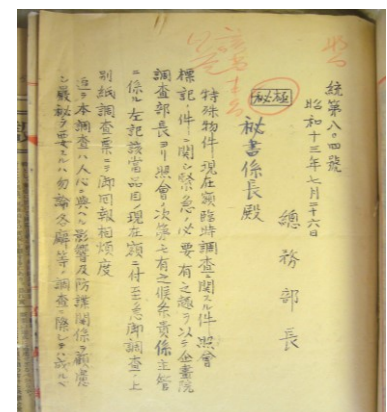 統第八〇四號
昭和十三年七月二十六日
總務部長
秘極
秘書係長殿
特殊物件現在額臨時調査ニ関スル件照會
標記ノ件ニ関シ緊急ノ必要有之趣ヲ以テ企畫院
調査部長ヨリ照會ノ次第モ有之候条貴係主管
ニ係ル左記該當品目ノ現在額ニ付至急御調査ノ上
別紙調査票ニテ御回報相煩度
追テ本調査ハ人心ニ與ヘル影響及防諜関係ヲ顧慮
シ厳秘ヲ要スルハ勿論各廳等ノ調査ニ際シテハ或ルベ